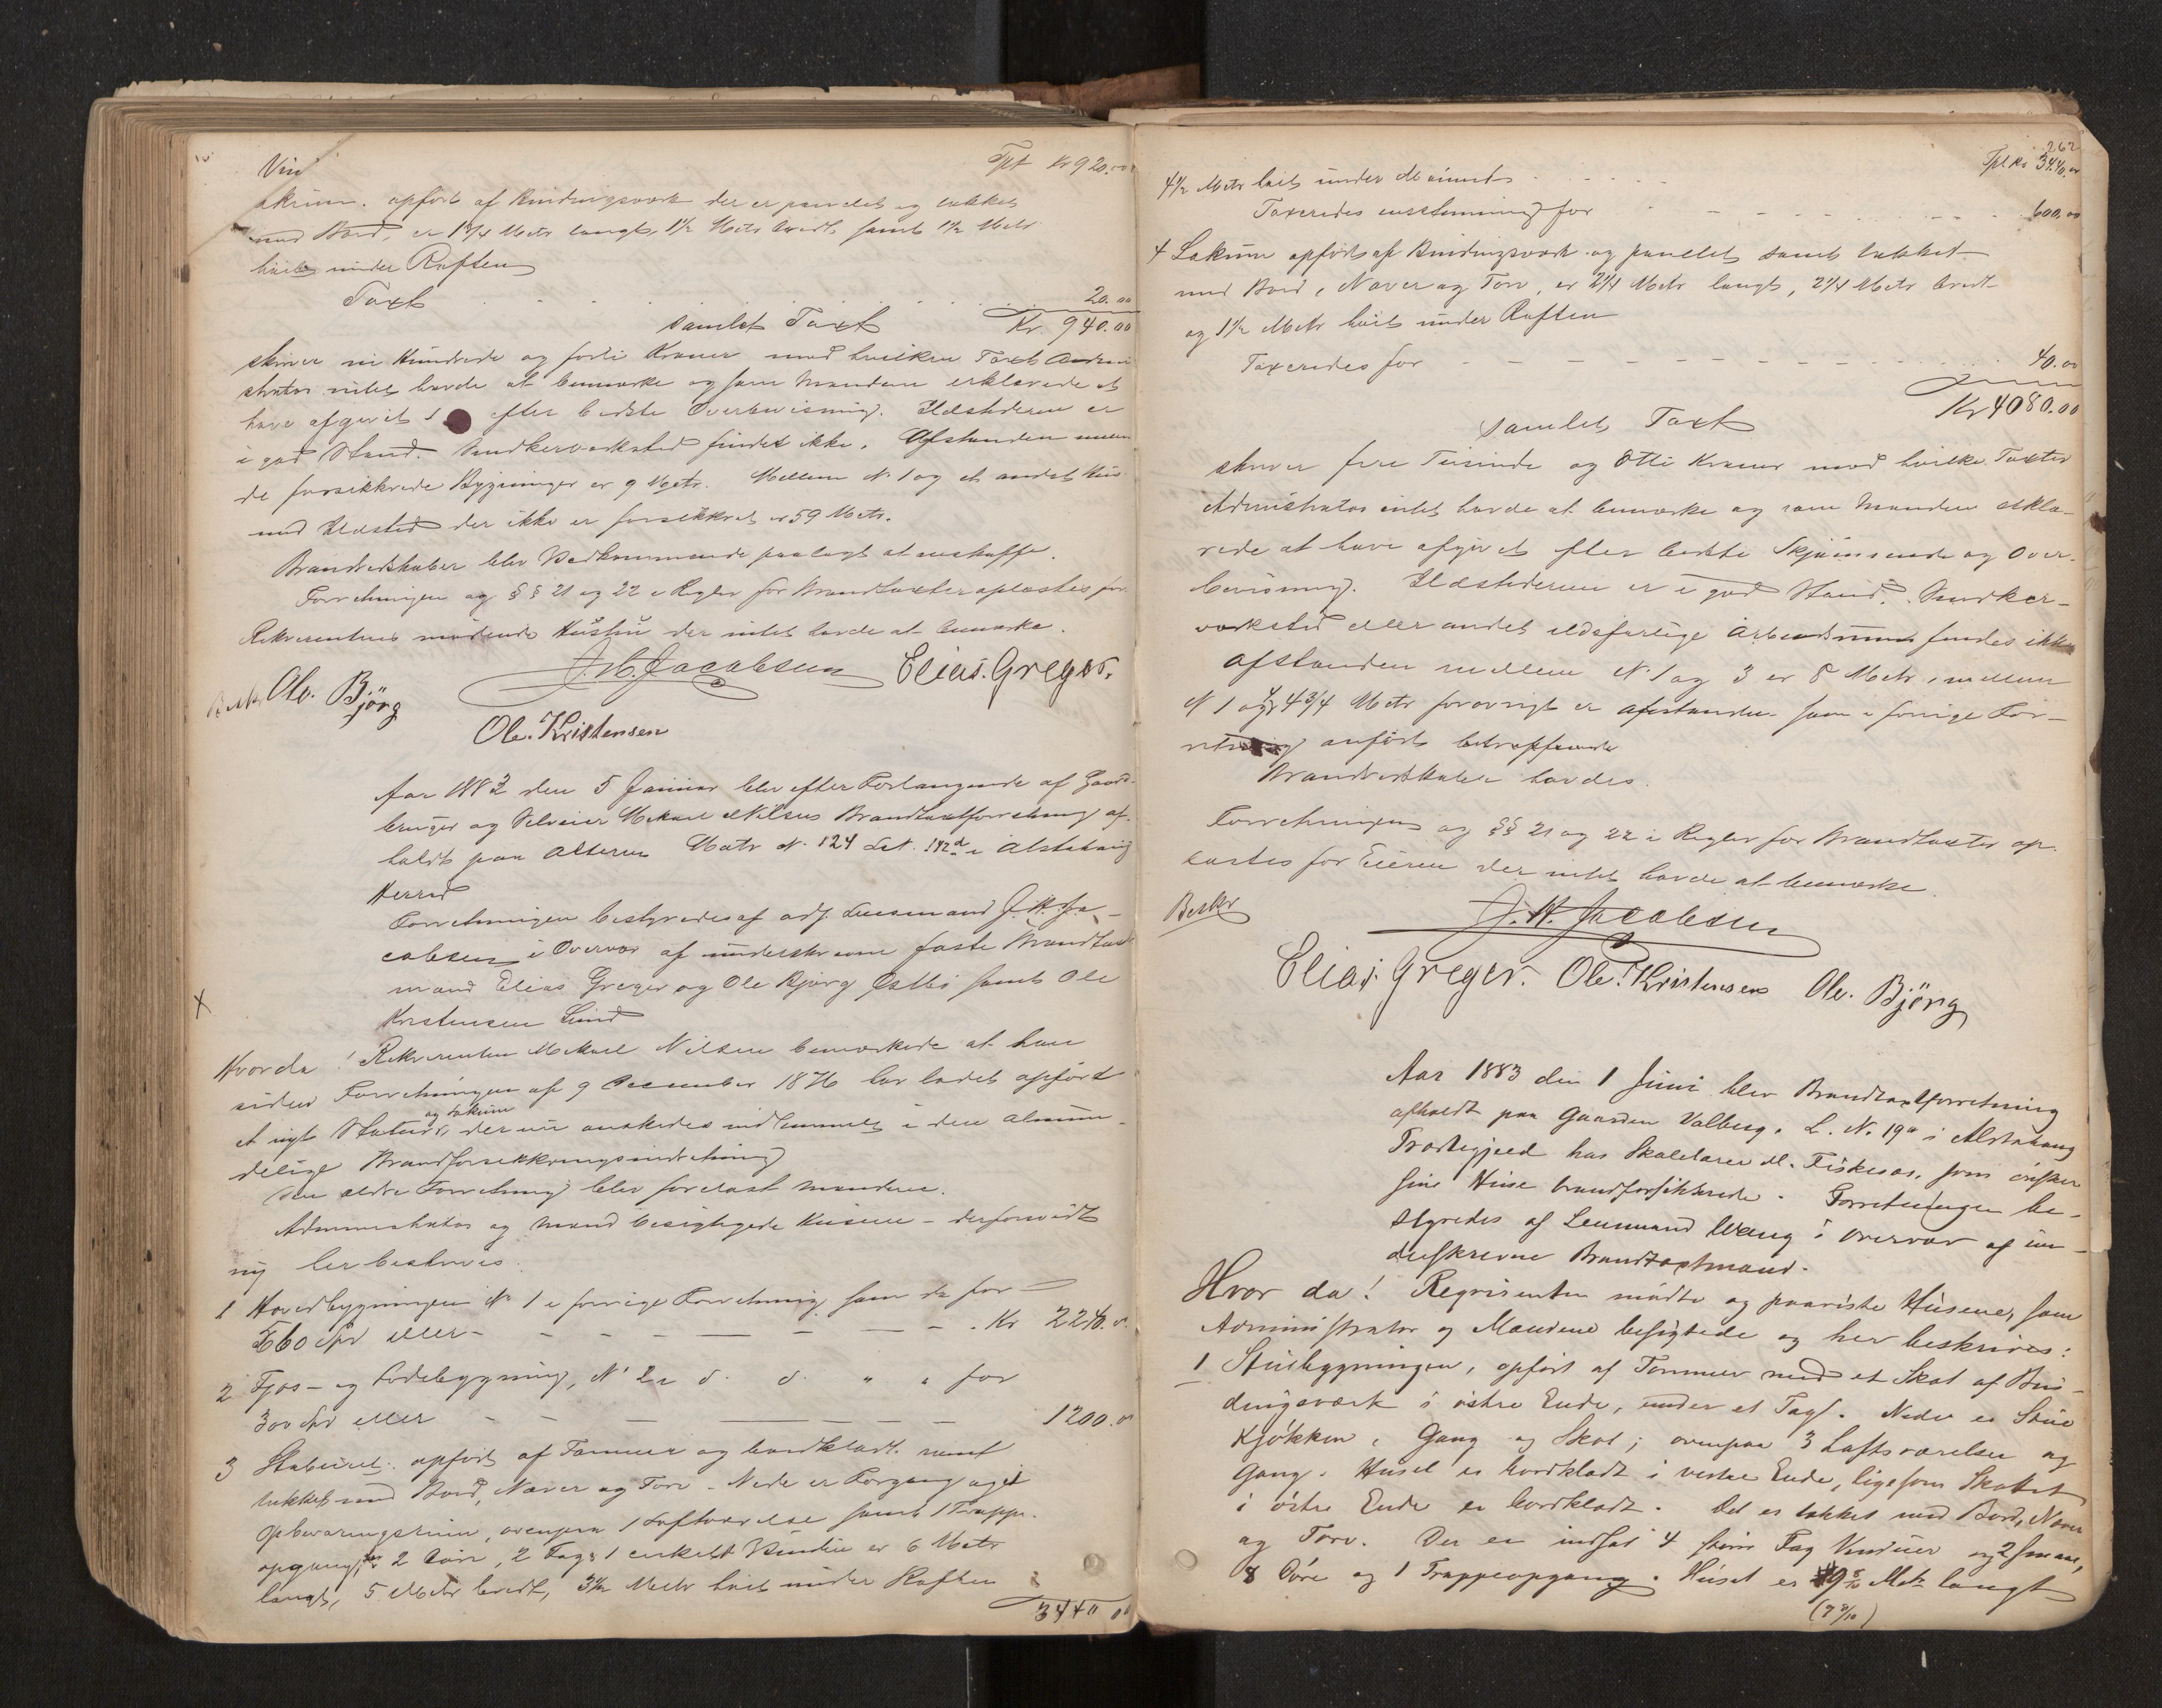 Tpt Kr 920.00
skrum. opført af Bindingsværk der er panelet og tækket
med Bord, er 1 3/4 Metr langt, 1 1/2 Metr bredt samt 1 1/2 Metr
høit under Raften
Taxt 20.00
samlet Taxt Kr. 940.00
skriver ni Hundrede og forti Kroner mod hvilken Taxt Admini
strator intet havde at bemærke og som Mændene erklærede at
have afgivet efter bedste Overbevisning. Ildstederne er
i god Stand. Snedkerværksted findes ikke. Afstanden mellem
de forsikkrede Bygninger er 9 Metr. Mellem N. 1 og et andet Huus
med Ildsted der ikke er forsikkret er 59 Metr.
Brandredskaber blev Vedkommende paalagt at anskaffe.
Forretningen og §§ 21 og 22 i Regler for Brandtaxter oplæstes for
Rekvirentens mødende Hustru der intet havde at bemærke.
J. H. Jacobsen Elias. Greger.
Beskr Ole. Björg
Ole. Kristensen
Aar 1883 den 5 Januar blev efter Forlangende af Gaard-
bruger og Selveier Mekael Nilsen Brandtaxtforretning af-
holdt paa Alteren Matr N. 124 Lit. 142d i Alstahaug
Herred
Forretningen bestyredes af adj. Lensmand J. H. Ja-
cobsen i Overvær af underskrevne faste Brandtaxt
mænd Elias Greger og Ole Bjørg Østbø samt Ole
Kristensen Lund
X
Hvor da! Rekvirenten Mekael Nilsen bemærkede at han
siden Forretningen af 9 December 1876 har ladet opført
et nyt Stabur, og Lokum der nu ønskedes indlemmet i den almin-
delige Brandforsikkringsindretning
Den ældre Forretning blev forelæst Mændene.
Administrator og Mænd besigtigede Husene - derforvidt
ny her beskrives.
1 Hovedbygningen N. 1 i forrige Forretning som da for
560 Spd eller - Kr 2240.00
2 Fjøs- og Ladebygning, N. 2 i d. d. " " for
300 Spd eller 1200.00
3 Staburet. opført af Tømmer og bordklædt samt
tækket med Bord, Næver og Torv. Nede er Forgang og et
Opbevaringsrum, ovenpaa 1 Loftværelse samt 1 Trappe-
opgang, har 2 Døre, 2 Fag & 1 enkelt Vindue er 6 Metr
langt, 5 Metr bredt, 3 1/2 Metr høit under Raften
3440 00
262
Tpt Kr 3440.00
4 1/2 Metr høit under Mønnet
Taxeredes enstemmig for 600.00
4 Lokum opført af Bindingsværk og panelet samt tækket
med Bord, Næver og Torv, er 2 1/4 Metr langt, 2 1/4 Metr bredt
og 1 1/2 Metr høit under Raften
Taxeredes for 40.00
samlet Taxt Kr 4080.00
skriver fire Tusinde og Otti Kroner mod hvilke Taxter
Administrator intet havde at bemærke og som Mændene erklæ-
rede at have afgivet efter bedste Skjønnende og Over-
bevisning. Ildstederne er i god Stand. Snedker-
værksted eller andet ildsfarlige Arbeidsrum findes ikke
Afstanden mellem N. 1 og 3 er 8 Metr, mellem
N 1 og 4 3/4 Metr forøvrigt er Afstanden som i forrige For-
retning anført betræffende
Brandredskaber havdes.
Forretningen og §§ 21 og 22 i Regler for Brandtaxter op-
læstes for Eieren der intet havde at bemærke
Beskr
J. H. Jacobsen
Elias. Greger. Ole. Kristensen Ole. Björg
Aar 1883 den 1 Juni blev Brandtaxtforretning
afholdt paa Gaarden Valberg. L. N. 19a i Alstahaug
Præstegjeld hos Skolelærer M. Fiskeaas, som ønsker
sine Huse brandforsikkrede. Forretningen be-
styredes af Lensmand Wang i Overvær af un-
derskrevne Brandtaxtmænd.
Hvor da! Reqvirenten mødte og paaviste Husene, som
Administrator og Mændene besigtede og her beskrives:
1 Stuebygningen, opført af Tømmer med et Skot af Bin-
dingsværk i østre Ende, under et Tag. Nede er Stue
Kjøkken, Gang og Skot; ovenpaa 3 Loftsværelser og
Gang. Huset er bordklædt i vestre Ende, ligesom Skottet
i østre Ende er bordklædt. Det er tækket med Bord, Næver
og Torv. Der er indsat 4 større Fag Vinduer og 2 smaae,
8 Døre og 1 Trappeopgang. Huset er 9 8/10 Metr langt
(9 8/10)